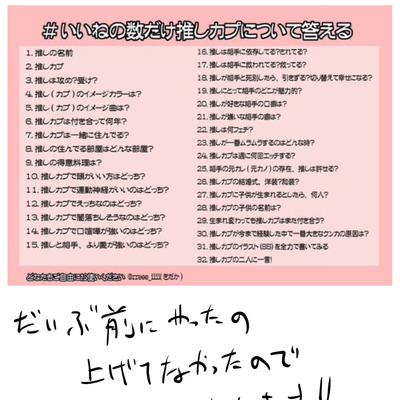 #いいねの数だけ推しカプについて答える
1. 推しの名前
2. 推しカプ
3. 推しは攻め?受け?
4. 推し(カプ)のイメージカラーは?
5. 推し(カプ)のイメージ曲は?
6. 推しカプは付き合って何年?
7. 推しカプは一緒に住んでる?
8. 推しの住んでる部屋はどんな部屋?
9. 推しの得意料理は?
10. 推しカプで頭がいい方はどっち?
11. 推しカプで運動神経がいいのはどっち?
12. 推しカプでえっちなのはどっち?
13. 推しカプで闇落ちしそうなのはどっち?
14. 推しカプで口喧嘩が強いのはどっち?
15. 推しと相手、より愛が強いのはどっち?
16. 推しは相手に依存してる?されてる?
17. 推しは相手に救われてる?救ってる?
18. 推しが相手と死別したら、引きずる?切り替えて幸せになる?
19. 推しにとって相手のどこが魅力的?
20. 推しが好きな相手の口癖は?
21. 推しが嫌いな相手の癖は?
22. 推しは何フェチ?
23. 推しが一番ムラムラするのはどんな時?
24. 推しカプは週に何回エッチする?
25. 相手の元カレ(元カノ)の存在、推しは許せる?
26. 推しカプの結婚式、洋装?和装?
27. 推しカプに子供が生まれるとしたら、何人?
28. 推しカプの子供の名前は?
29. 生まれ変わっても推しカプはまた付き合う?
30. 推しカプが今まで経験した中で一番大きなケンカの原因は?
31. 推しカプのイラスト(SS)を全力で書いてみる
32. 推しカプの二人に一言!
どなたもご自由にお使いください
だいぶ前にやったの
上げてなかったので